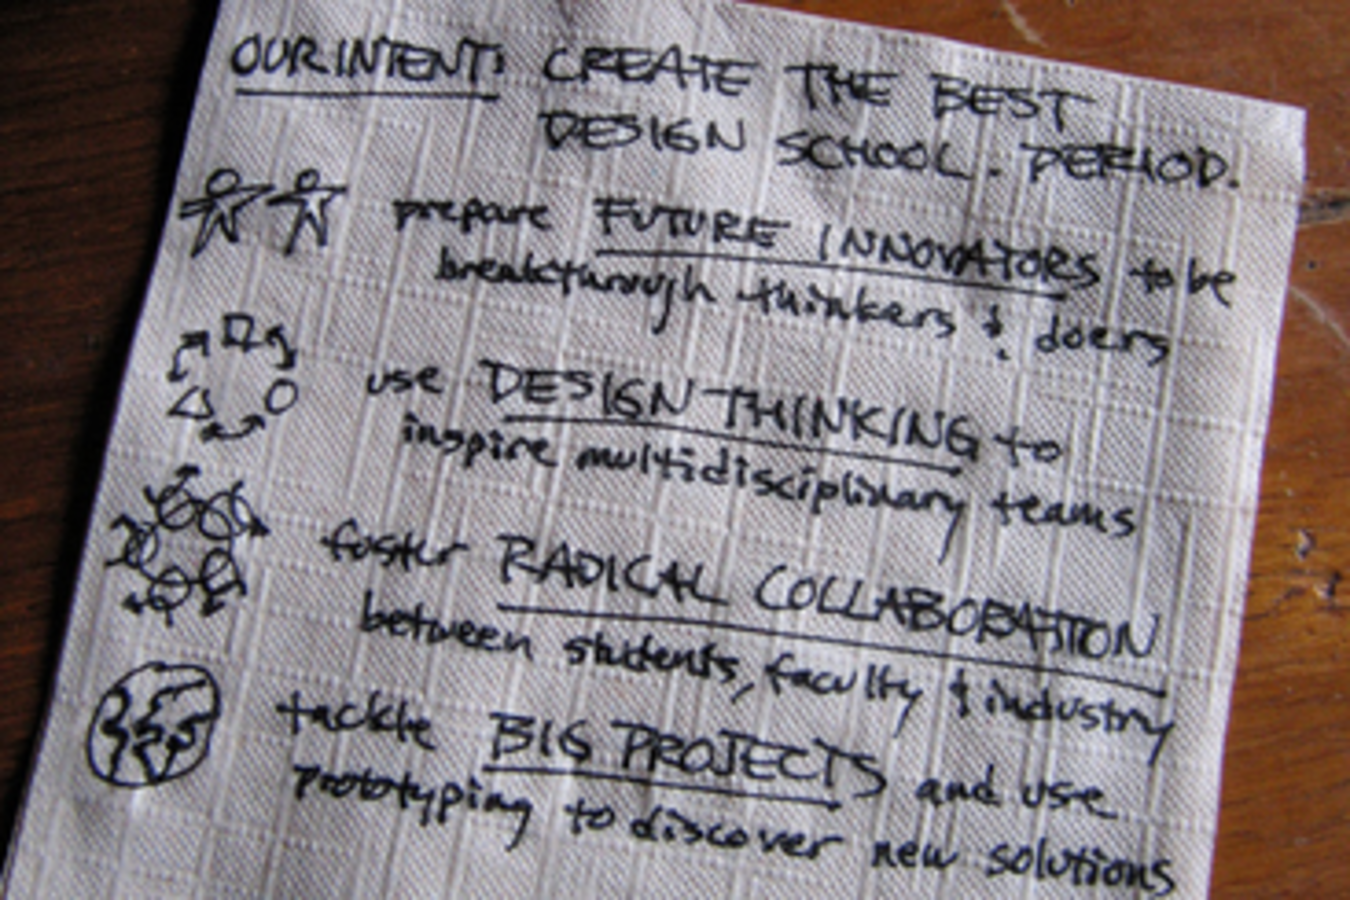 OUR INTENT: CREATE THE BEST
DESIGN SCHOOL. PERIOD.
prepare FUTURE INNOVATORS to be
breakthrough thinkers & doers
use DESIGN THINKING to
inspire multidisciplinary teams
foster RADICAL COLLABORATION
between students, faculty & industry
tackle BIG PROJECTS and use
prototyping to discover new solutions